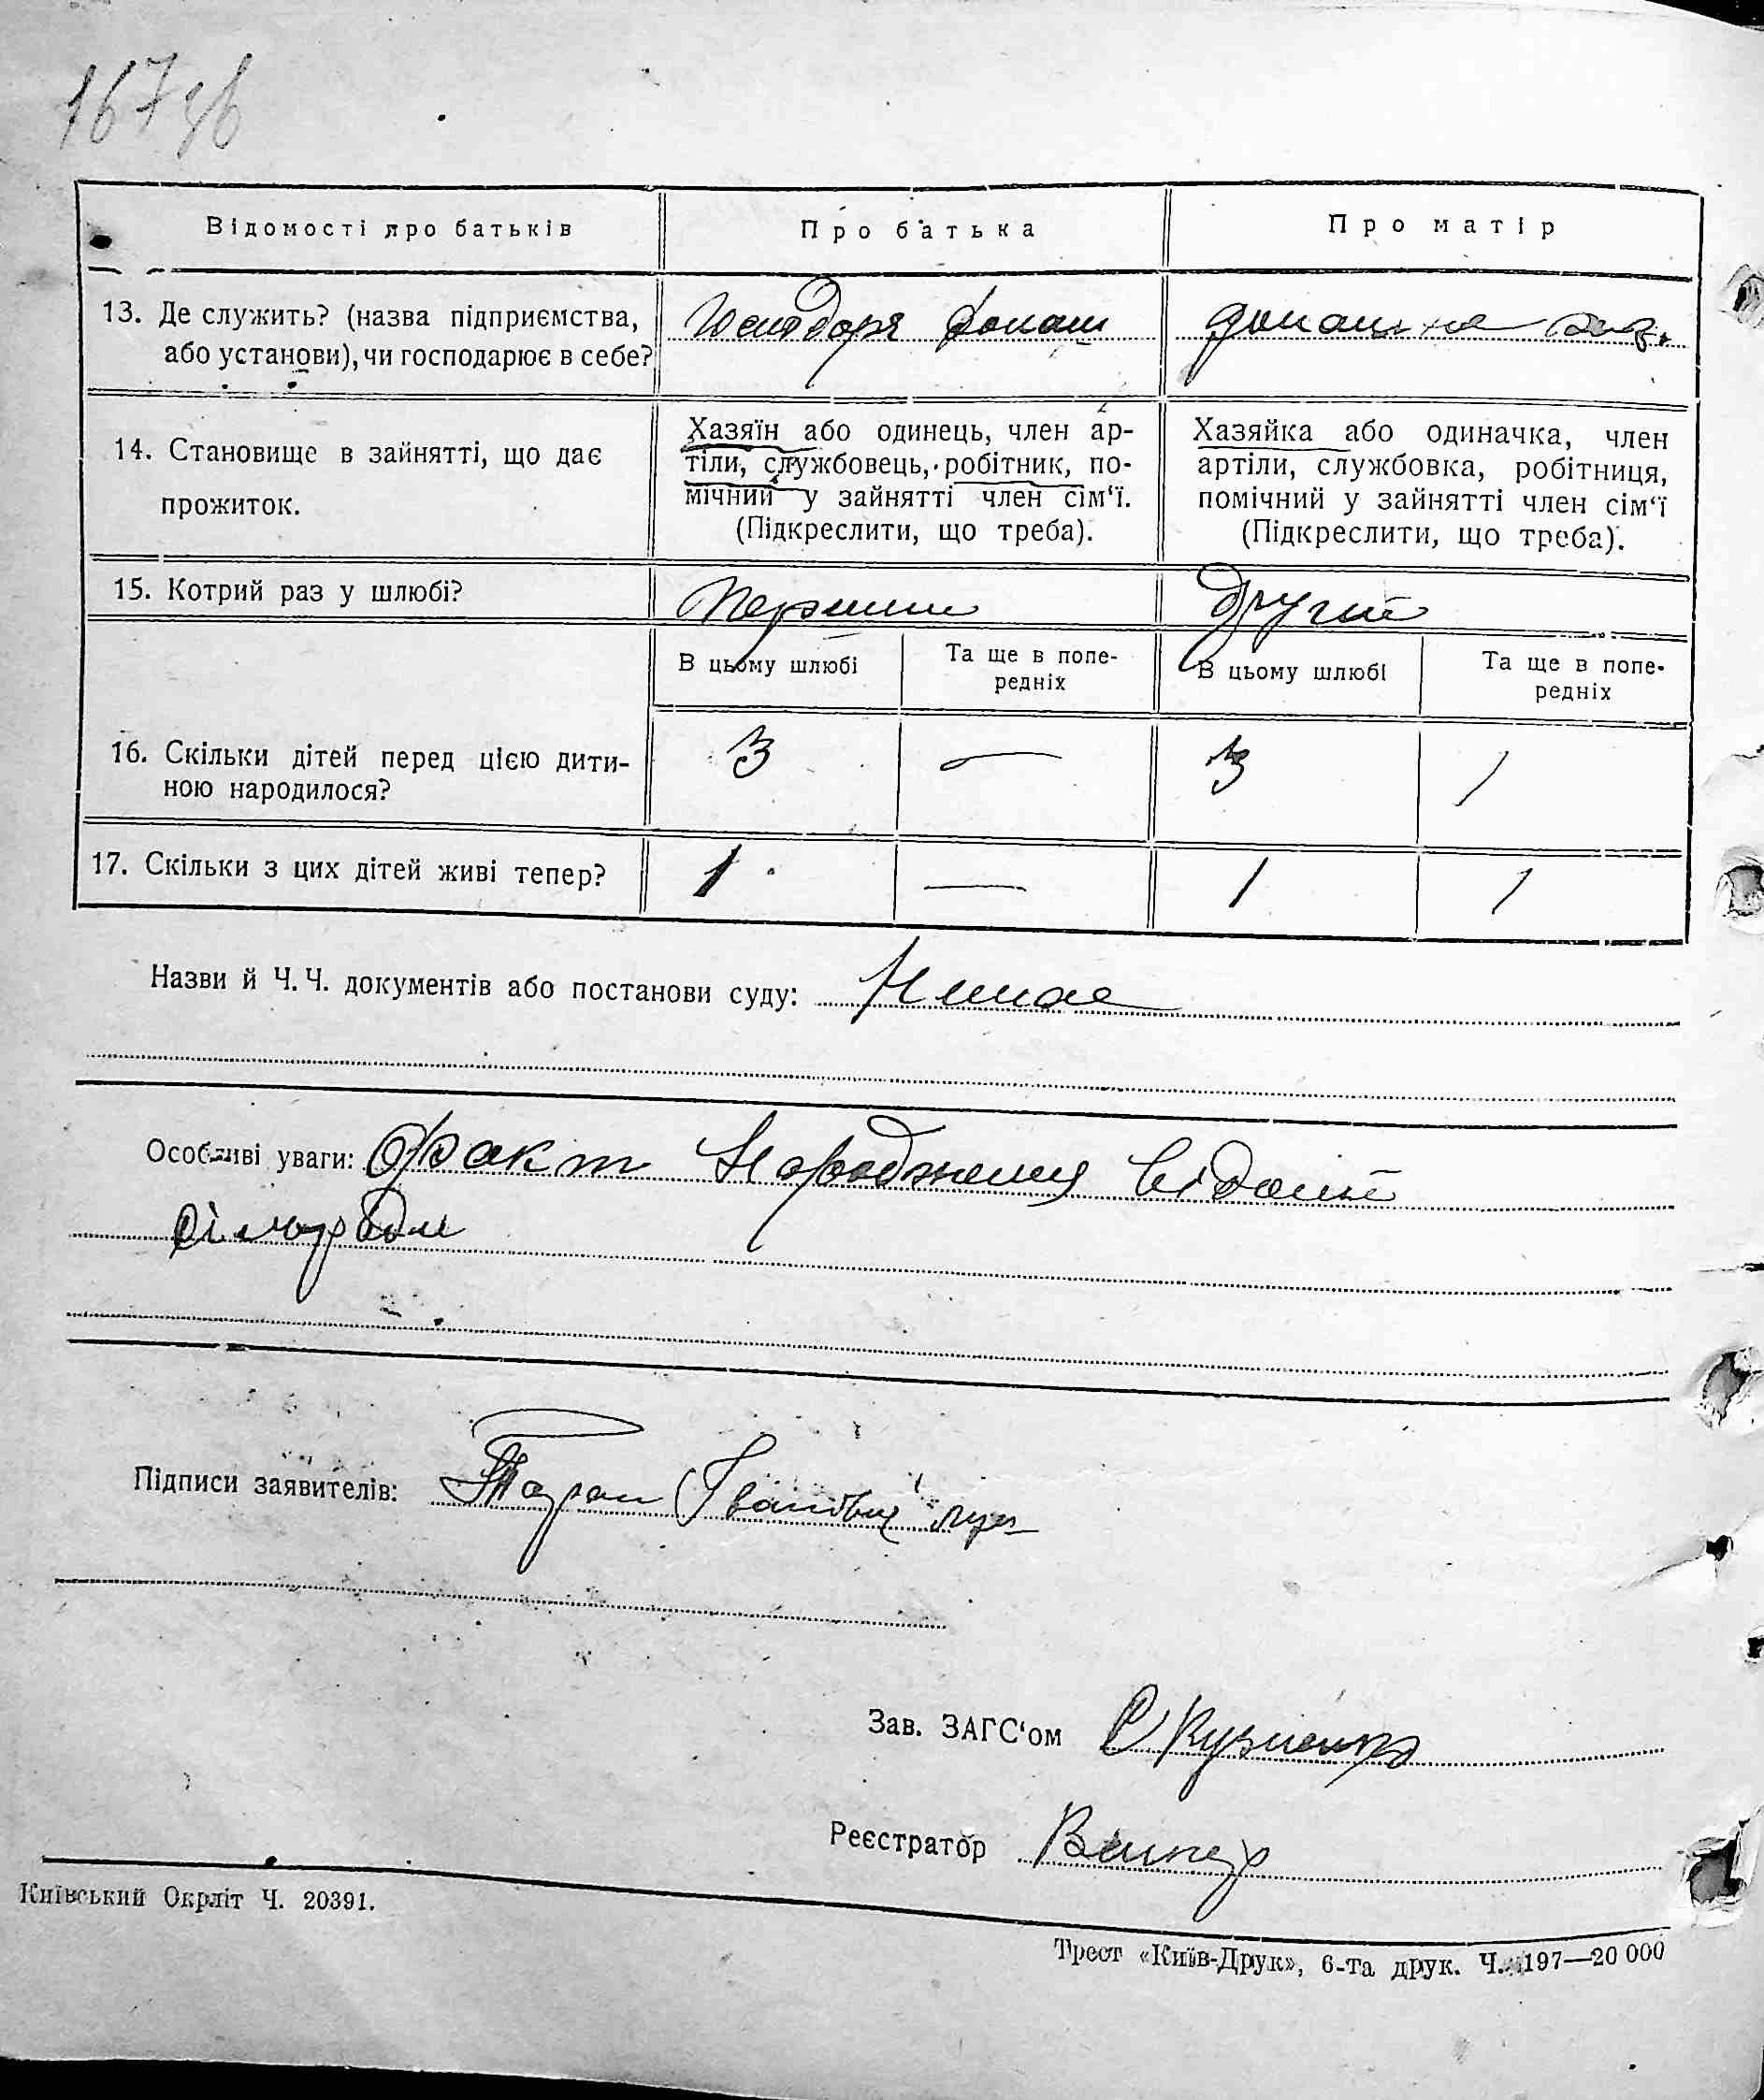 167 зв
Відомості про батьків
Про батька
Про матір
13. Де служить? (назва підприємства,
або установи), чи господарює в себе?
14. Становище в зайнятті, що дає
прожиток.
Хазяїн або одинець, член ар-
тіли, службовець, робітник, по-
мічний у зайнятті член сім‘ї.
(Підкреслити, що треба).
Хазяйка або одиначка, член
артіли, службовка, робітниця,
помічний у зайнятті член сім‘ї
(Підкреслити, що треба).
15. Котрий раз у шлюбі?
Перший
Другий
В цьому шлюбі
Та ще в попе-
редніх
В цьому шлюбі
Та ще в попе-
редніх
16. Скільки дітей перед цією дити-
ною народилося?
3 — 3 1
17. Скільки з цих дітей живі тепер?
1 — 1 1
Назви й Ч. Ч. документів або постанови суду: Немає
Особливі уваги: Факт народження відомий
сільраді
Підписи заявителів: Таран
Зав. ЗАГС‘ом Кузменко
Реєстратор
Київський Окрліт Ч. 20391.
Трест «Київ-Друк», 6-та друк. Ч. 197—20 000